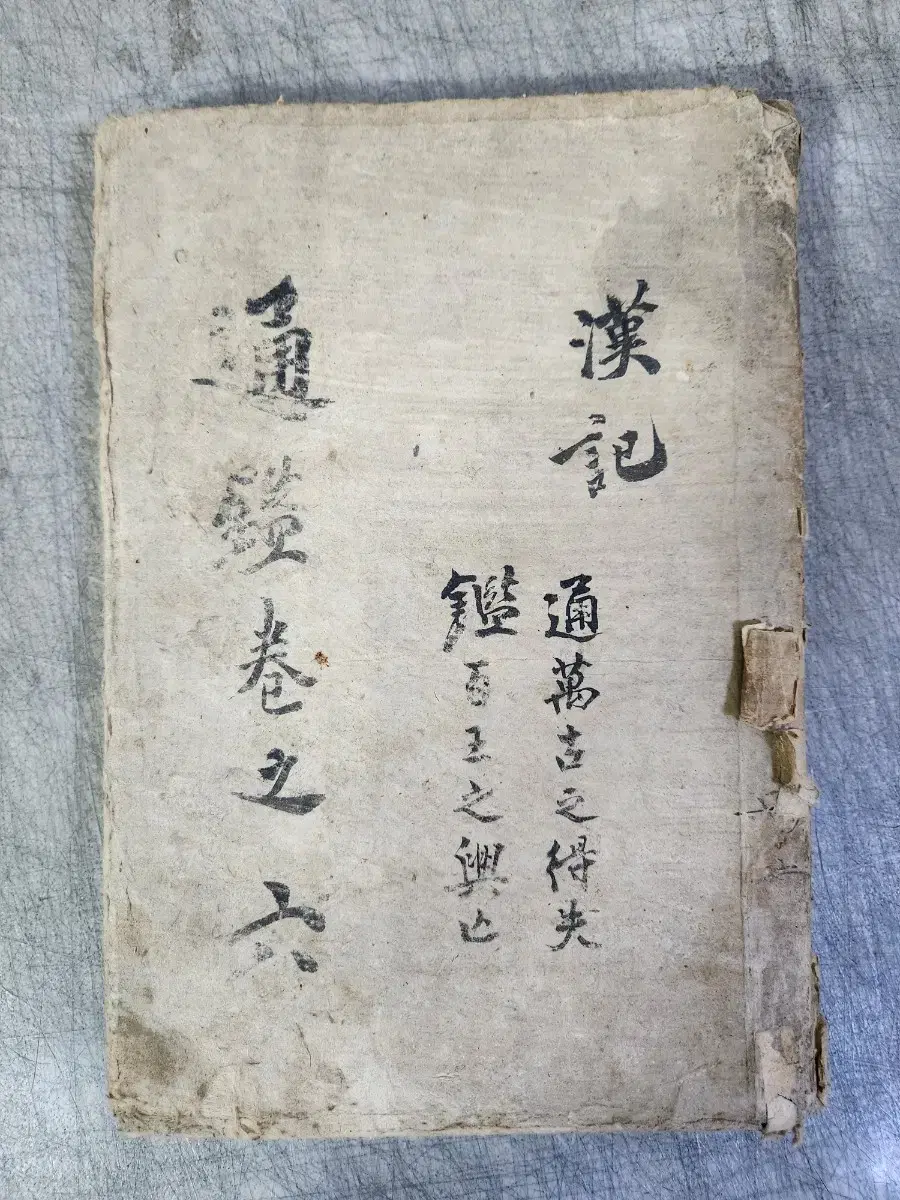 漢記
通萬古之得失
鑑百王之興亡
通鑑卷之六